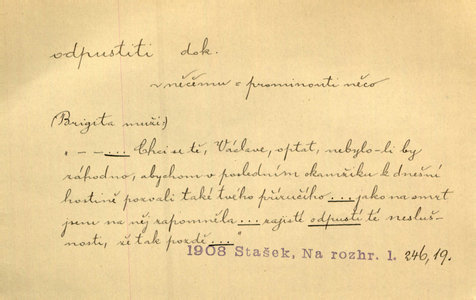 odpustiti dok.
~ něčemu = prominouti něco
(Brigita muži:)
„ – – – ... Chci se tě, Václave, optat, nebylo-li by
záhodno, abychom v posledním okamžiku k dnešní
hostině pozvali také tvého příručího ... jako na smrt
jsem na něj zapomněla ... zajisté odpustí té nesluš-
nosti, že tak pozdě ... "
1908 Stašek, Na rozhr. 1. 246, 19.